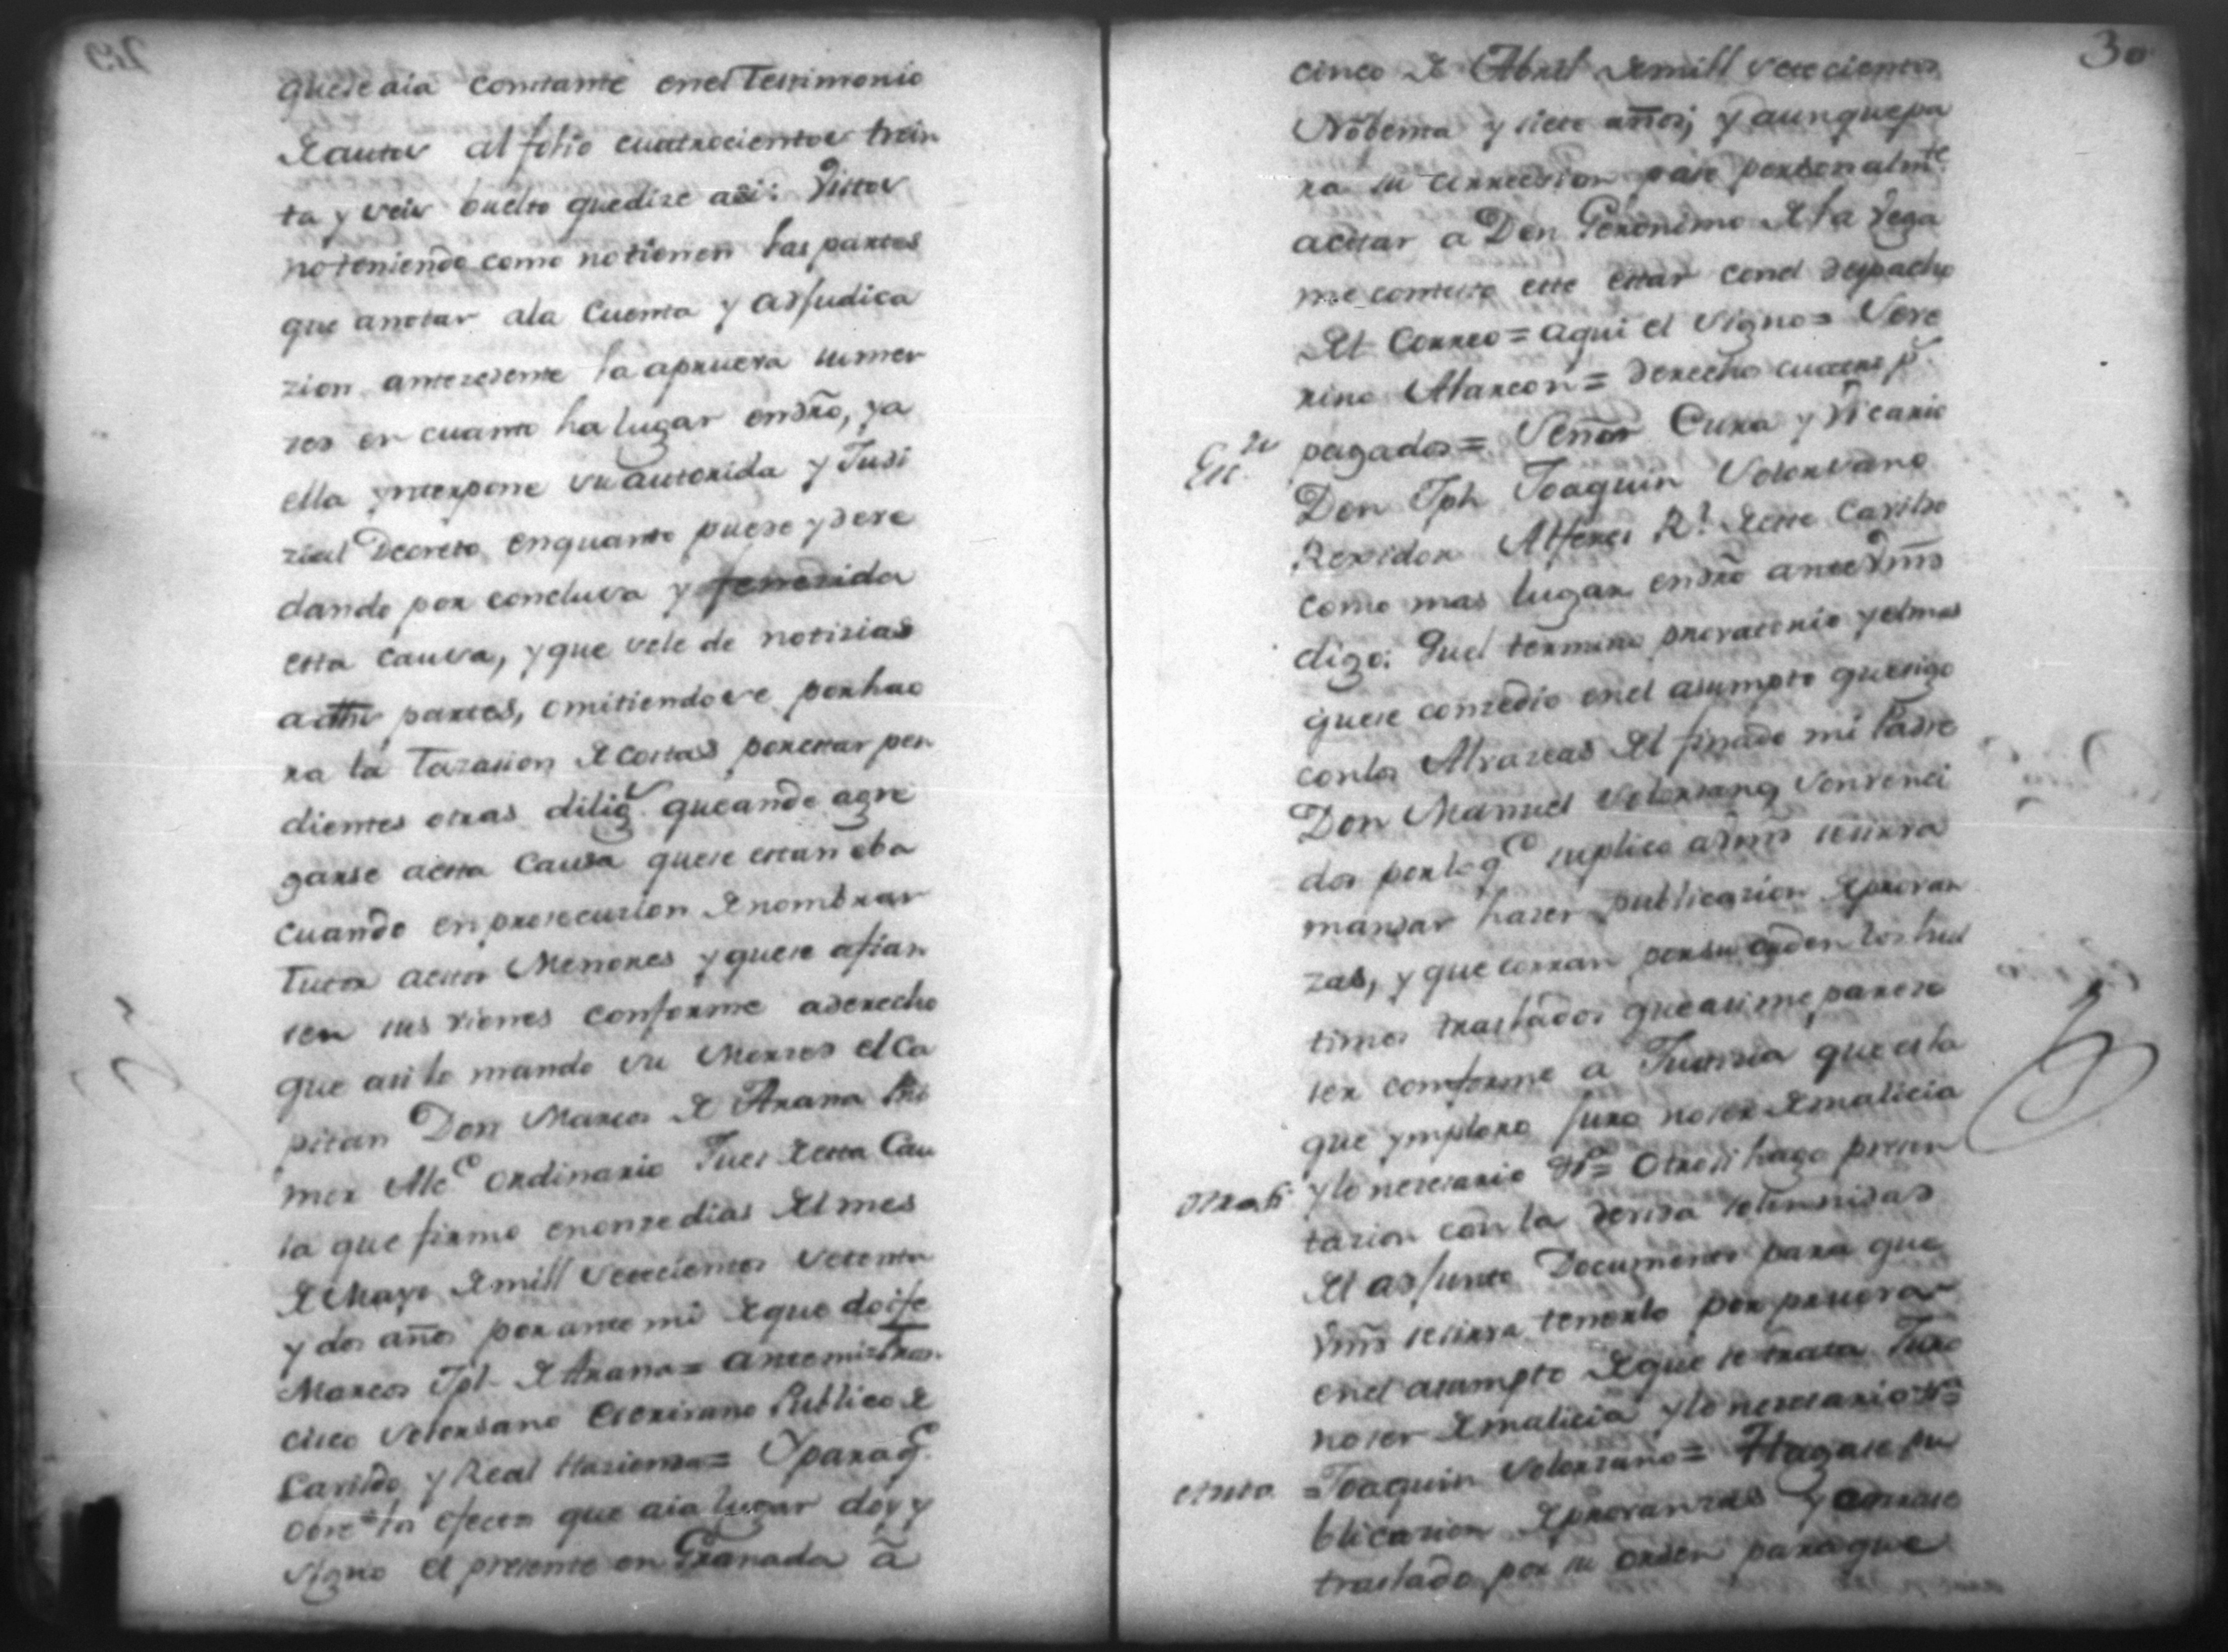 quese aia constante enel Testimonio
de autos al folio cuatrocientos trein
ta y seis buelto quedize asi: Vistos
noteniendo como notienen las partes
que anotar ala Cuenta y adjudica
zion antezedente la aprueva sumer
zed en cuanto ha lugar endro, ya
ella ynterpone su autorida y Judi
zial Decreto enquanto puede y deve
dando por conclusa y fenezida
esta causa, y que sele de notizias
a las partes, omitiendose por hao
ra la Tazasion de costas porestar pen
dientes otras dilig.s queande agre
garse aesta Causa quese estan eba
cuando en prosecuzion de nombrar
Tutor aestos Menores y quese afian
sen sus vienes conforme aderecho
que asi lo mando su Merzed el Ca
pitan Don Marcos de Arana Pri
mer Alc.e ordinario Jues de esta Cau
sa que firmo enonze dias del mes
de Mayo de mill setecientos setenta
y dos años por ante mi de que doi fe
Marcos Jph de Arana = ante mi = Fran
cisco Solorsano Escrivano Publico de
Cavildo y Real Hazienda = Y para q.e
obre los efectos que aia lugar doy y
signo el presente en Granada â
30
cinco de Abril demill setecientos
Nobenta y siete años; y aunque pa
ra su correccion pase personalm.te
acitar a Don Geronimo de la Vega
me contesto este estar conel despacho
del Correo = aqui el signo = Seve
rino Alarcon = derechos cuatro p.s
Esc.to pagados = Señor Cura y Vicario
Don Jph Joaquin Solorsano
Rexidor Alferes R.l de este Cavildo
como mas lugar endro ante Vmd
digo: Quel termino provatorio y el mas
quese conzedio enel asumpto quesigo
conlos Alvazeas del finado mi Padre
Don Manuel Solorsano, son venci
dos por lo q.e suplico a Vmd sesirva
mandar hazer publicazion de provan
zas, y que corran por su orden los hul
timos traslados que asi me pareze
ser conforme a Justizia que es la
que ymploro juro noser de malicia
y lo nezesario &.a =
Otro si Otro si hago presen
tazion con la devida solemnidad
del adjunto Documento para que
Vmd sesirva tenerlo por prueva
enel asumpto de que se trata Juro
noser de malicia y lo nezesario &.a
Auto = Joaquin Solorzano = Hagase pu
blicazion de provanzas y corrase
traslado por su orden para que